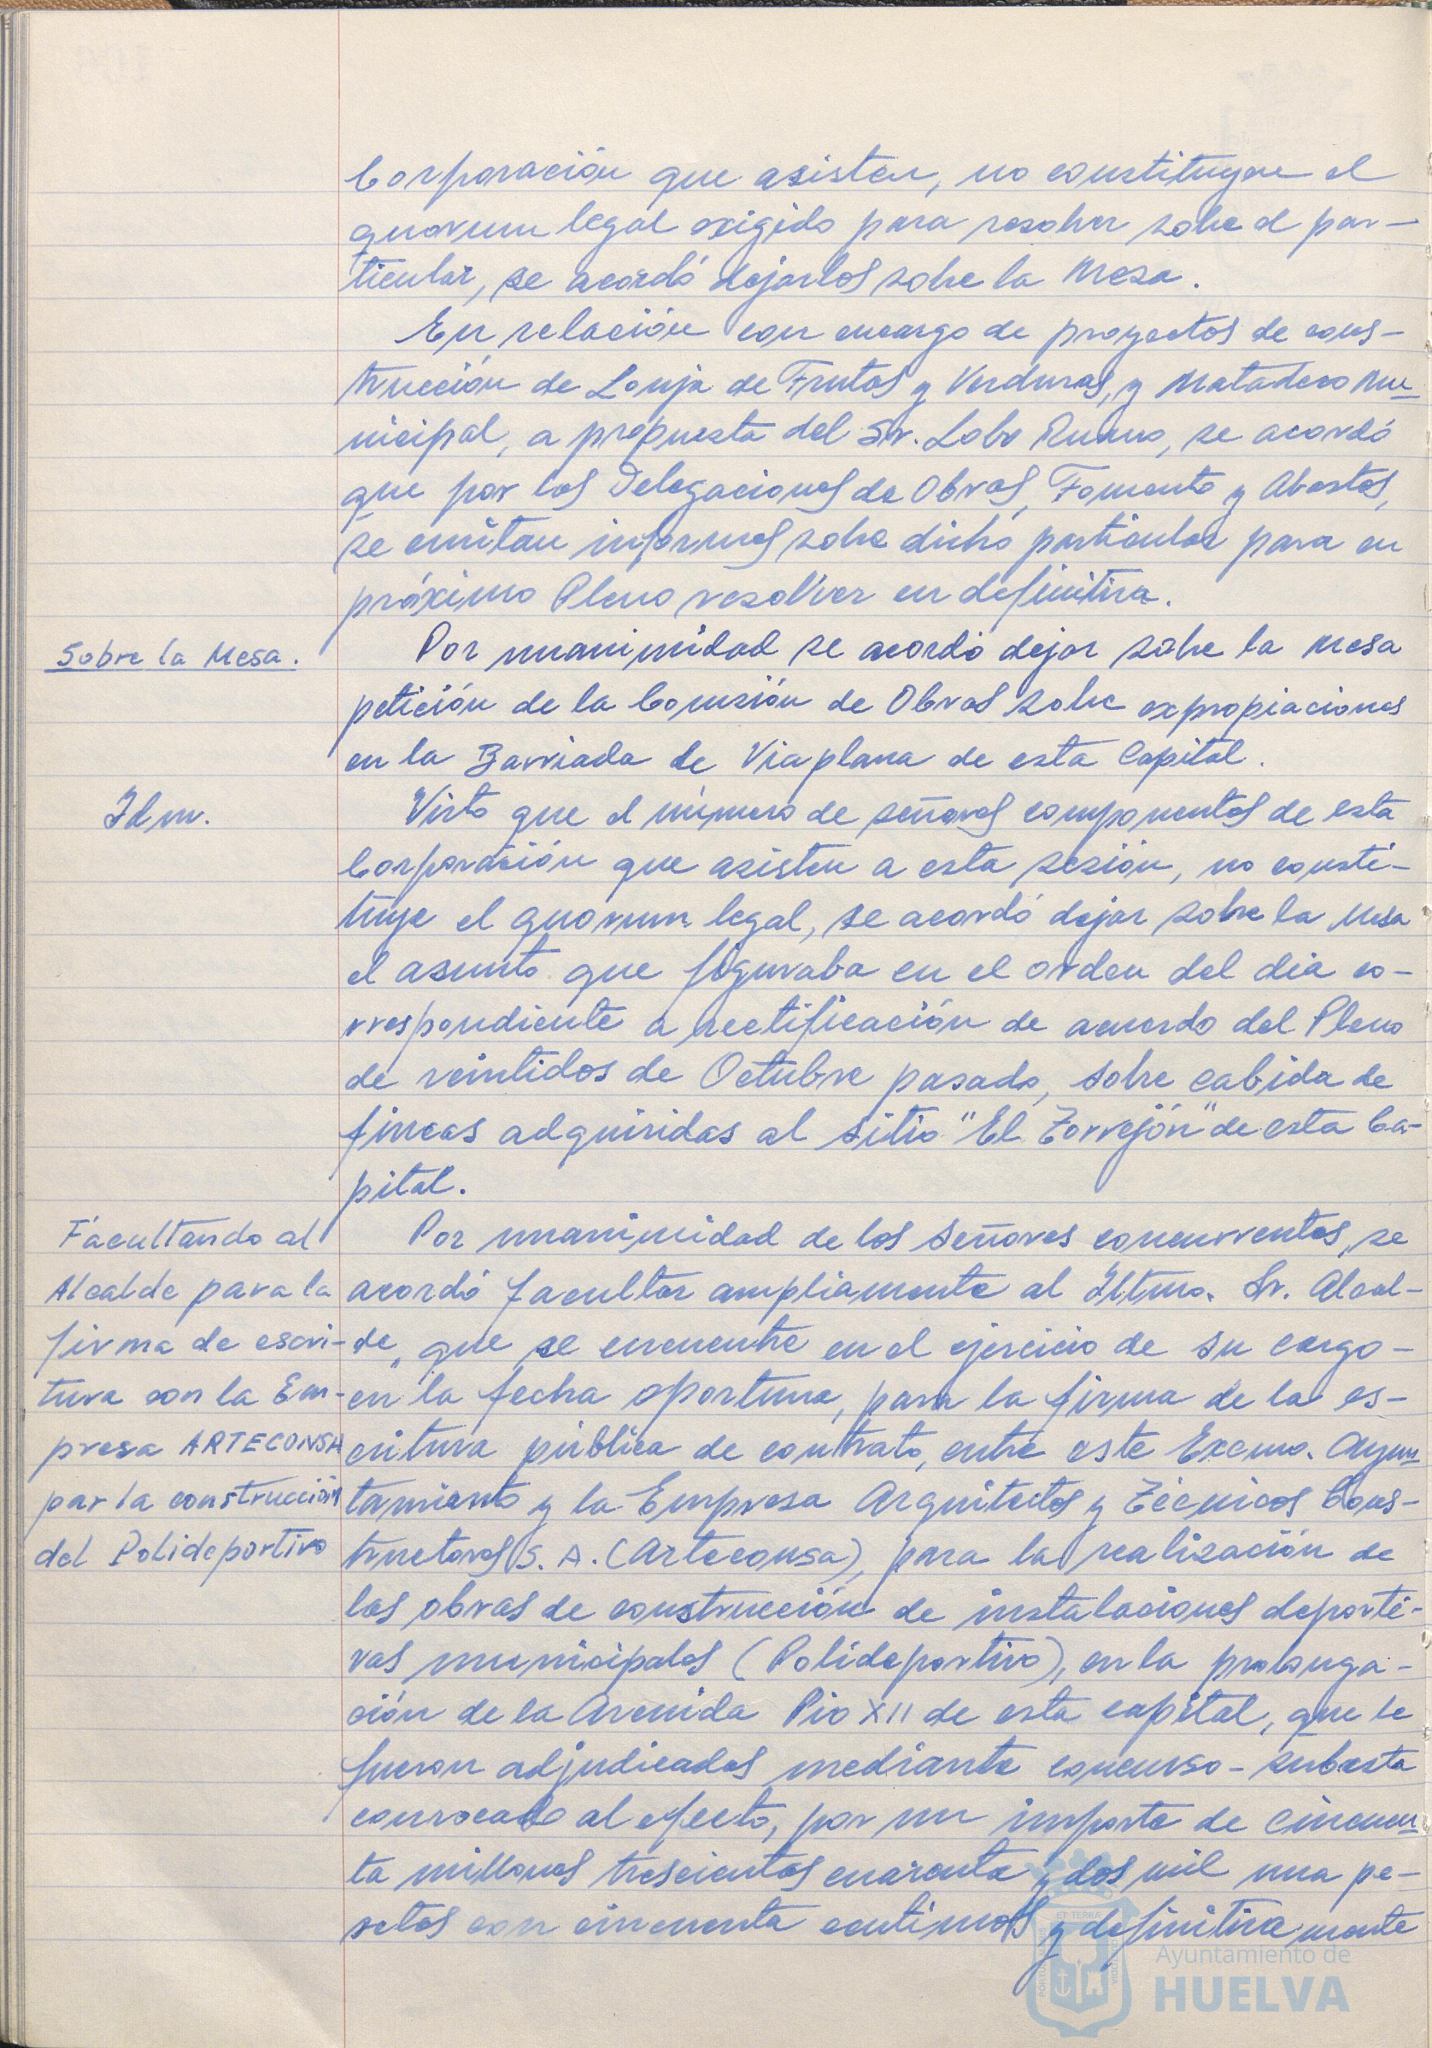 Corporación que asisten, no constituyen el
quorum legal exigido para resolver sobre el par-
ticular, se acordó dejarlos sobre la Mesa.
En relación con encargo de proyectos de cons-
trucción de Lonja de Frutas y Verduras, y Matadero Mu-
nicipal, a propuesta del Sr. Lobo Ruano, se acordó
que por las Delegaciones de Obras, Fomento y Abastos,
se emitan informes sobre dicho particular para en
próximo Pleno resolver en definitiva.
Sobre la Mesa.
Por unanimidad se acordó dejar sobre la Mesa
petición de la Comisión de Obras sobre expropiaciones
en la Barriada de Viaplana de esta Capital.
Idm.
Visto que el número de señores componentes de esta
Corporación que asisten a esta sesión, no consti-
tuye el quorum legal, se acordó dejar sobre la Mesa
el asunto que figuraba en el orden del dia co-
rrespondiente a rectificación de acuerdo del Pleno
de veintidos de Octubre pasado, sobre cabida de
fincas adquiridas al sitio "El Torrejón" de esta Ca-
pital.
Facultando al
Alcalde para la
firma de escri-
tura con la Em-
presa ARTECONSA
par la construcción
del Polideportivo
Por unanimidad de los señores concurrentes, se
acordó facultar ampliamente al Iltmo. Sr. Alcal-
de, que se encuentre en el ejercicio de su cargo-
en la fecha oportuna, para la firma de la es-
critura pública de contrato, entre este Excmo. Ayun-
tamiento y la Empresa Arquitectos y Técnicos Cons-
tructores S. A. (Arteconsa), para la realización de
las obras de construcción de instalaciones deporti-
vas municipales (Polideportivo), en la prolonga-
ción de la Avenida Pio XII de esta capital, que le
fueron adjudicadas mediante concurso-subasta
convocado al efecto, por un importe de cincuen-
ta millones trescientas cuarenta y dos mil una pe-
setas con cincuenta centimos y definitivamente
Ayuntamiento de
HUELVA